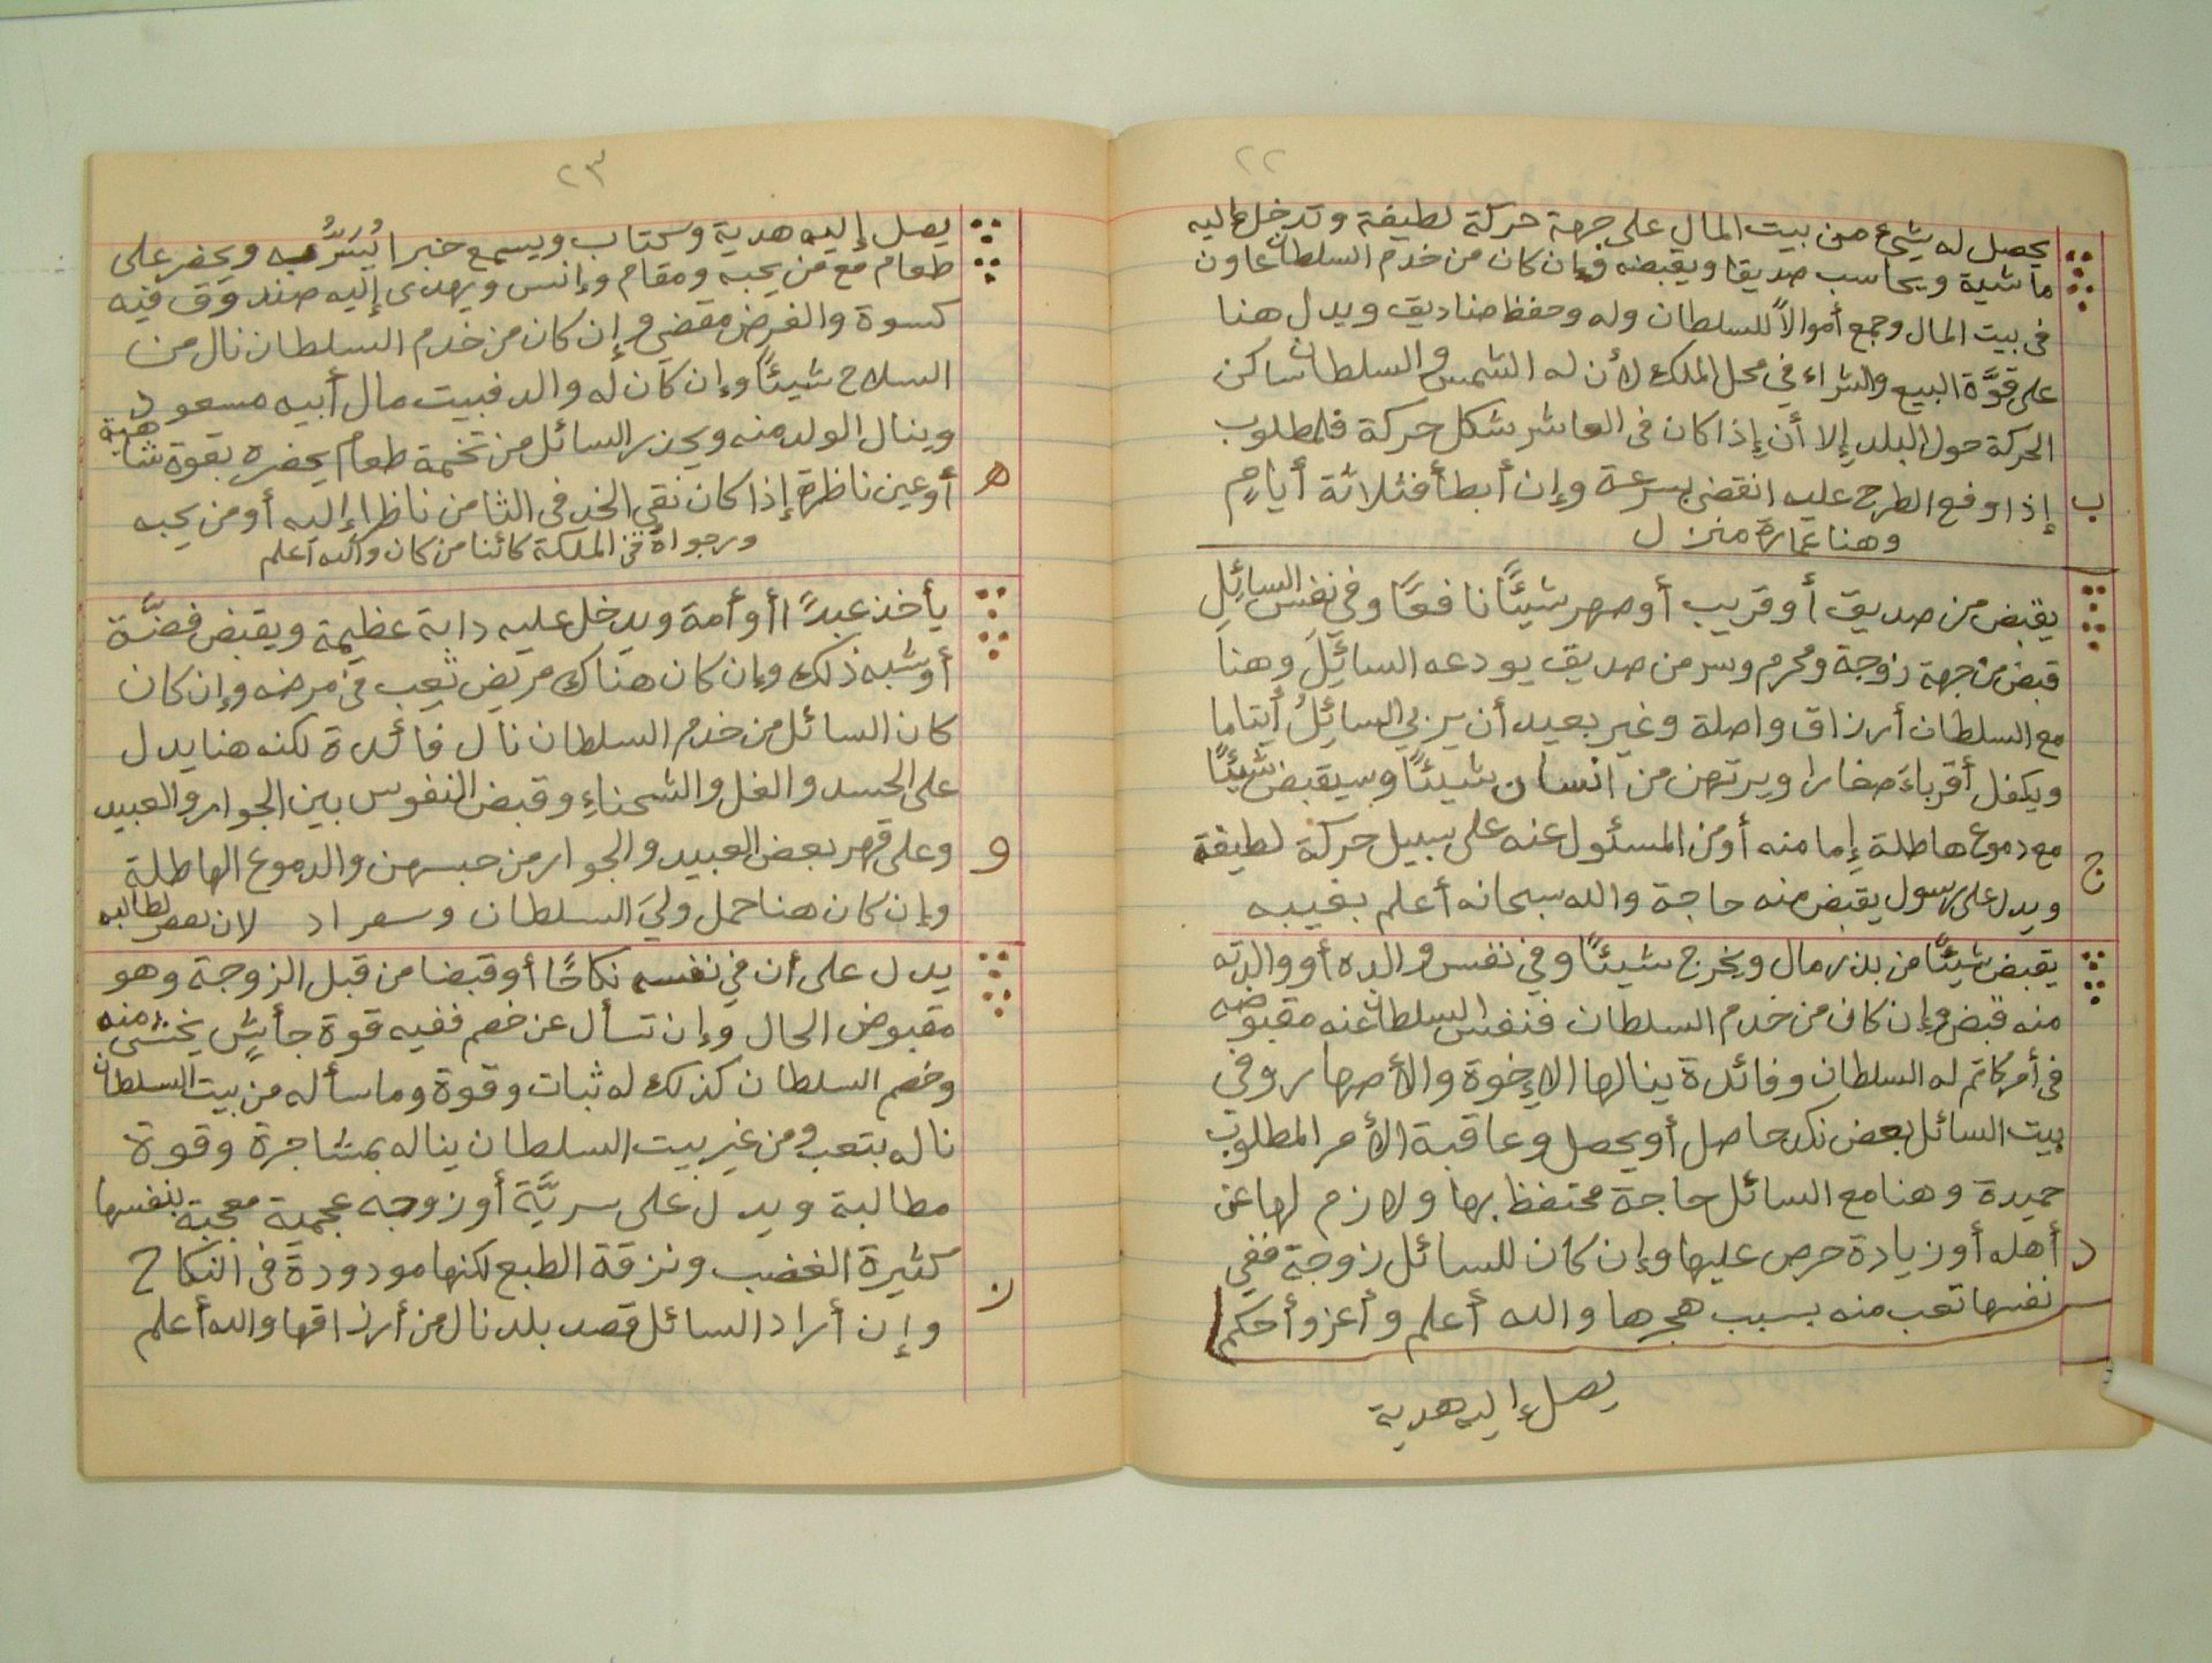 ٢٢
يحصل له شيئ من بيت المال على جهة حركة لطيفة وتدخل عاليه
ماشية ويحاسب صديقا ويقبضه وإن كان من خدم السلطان عاون
فى بيت المال وجمع أموالاً للسلطان وله وحفظ صناديق ويدل هنا
على قوَّة البيع والشراء في محل الملك لأن له الشمس والسلطان ساكن
الحركة حول البلد إلا أن إذا كان فى العاشر شكل حركة فالمطلوب
ب
إذا وقع الطرح عليه انقضى بسرعة وإن أبطأ فثلاثة أيامٍ
وهنا عمارة منزل
يقبض من صديق أو قريب أو صهر شيئًا نافعًا وفي نفس السائِلِ
قبض من جهة زوجة ومحرم وسر من صديق يودعه السائِلَ وهنا
مع السلطان أرزاق واصلة وغير بعيد أن يربي السائِلُ أيتاما
ويكفل أقرباءَ صغارا ويرتهن من انسان شيئًا وسيقبض شيئًا
مع دموع هاطلة إما منه أومن المسئول عنه على سبيل حركة لطيفة
ج
ويدل على رسول يقبض منه حاجة والله سبحانه أعلم بغيبه
يقبض شيئًا من بذر مال ويخرج شيئًا وفي نفس والده أو والدته
منه قبض وإن كان من خدم السلطان فنفس السلطان عنه مقبوضه
فى أمر كاتم له السلطان وفائدة ينالها الإخوة والأصهار وفي
بيت السائل بعض نكد حاصل أو يحصل وعاقبة الأمر المطلوب
حميدة وهنا مع السائل حاجة محتفظ بها ولازم لها عن
د
أهله أو زيادة حرص عليها وإن كان للسائل زوجة ففي
نفسها تعب منه بسبب هجرها والله أعلم وأعز وأحكم
يصل إليه هدية
٢٣
يصل إليه هدية وكتاب ويسمع خبرا يُسَرُّ به ويحضر على
طعام مع من يحبه ومقام وإنس ويهدى إليه صندوق فيه
كسوة والغرض مقضي وإن كان من خدم السلطان نال من
السلاح شيئًا وإن كان له والد فبيت مال أبيه مسعود
وينال الولد منه ويحذر السائل من تخمة طعام يحضره بقوة شاهية
ه
أو عين ناظرة إذا كان نقي الخد فى الثامن ناظرا إليه أومن يحبه
ورجواة في الملكة كائنا من كان والله أعلم
يأخذ عبدًا أو أمة ويدخل عليه دابة عظيمة ويقبض فضَّة
أو شبه ذلك وإن كان هناك مريض تعب في مرضه وإن كان
كان السائل من خدم السلطان نال فائدة لكنه هنا يدل
على الحسد والغل والشحناءِ وقبض النفوس بين الجوار والعبيد
و
وعلى قهر بعض العبيد والجوار من حبسهن والدموع الهاطلة
وإن كان هنا حمل وليَ السلطان وسعراد لان بعض لطالبه
يدل على أن في نفسه نكاحًا أو قبضا من قبل الزوجة وهو
مقبوض الحال وإن تسأل عن خصم ففيه قوة جأشٍ يخشى منه
وخصم السلطان كذلك له ثبات وقوة وما سأله من بيت السلطان
ناله بتعب ومن غير بيت السلطان يناله بمشاجرة وقوة
مطالبة ويدل على سريَّة أو زوجه عجمية معجبة بنفسها
كثيرة الغضب ونزقة الطبع لكنها مودودة فى النكاح
ز
وإن أراد السائل قصد بلد نال من أرزاقها والله أعلم